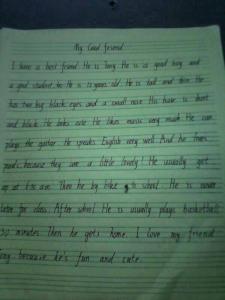 My Good friend
I have a best friend. He is Tong. He is a good boy and
a good student. he He is 13 years old. He is tall and thin. He
has two big black eyes and a small nose. His hair is short
and black. He looks cute. He likes music very much. He can
plays the guitar. He speaks English very well. And he likes
because they are a little lovely! He usually get
up at 6:30 Then he by bike to school. He is never
late for class. After school. He is usually plays basketball
30 minutes. Then he gets home. I love my friend
Tong. because he's fun and cute.